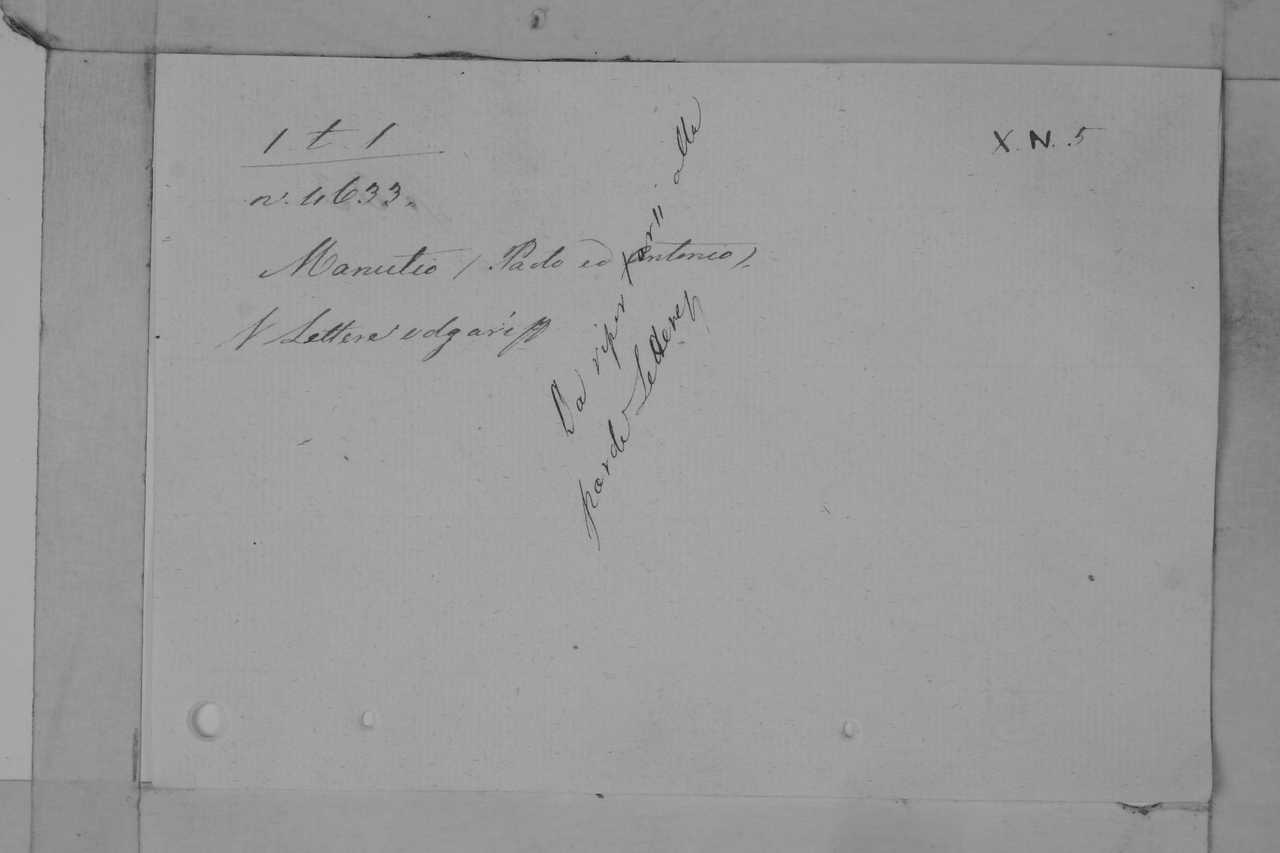 1. t. 1
X. N. 5
n. 4633.
Manutio (Paolo ed Antonio).
Lettere volgari
Da riportarsi alla
par. de Lettere